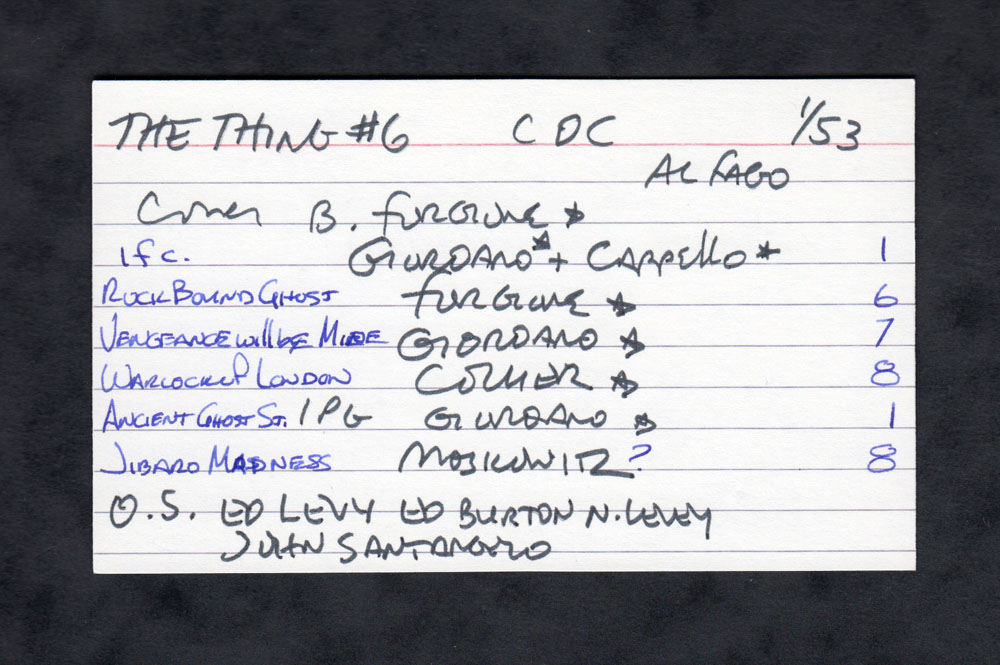 THE THING #6 CDC 1/53
AL FAGO
Cover B. FURGIUNE ★
Ifc. GIORDANO★ + CAPPELLO ★ 1
ROCK BOUND GHOST FURGIUNE ★ 6
VENGEANCE will be MINE GIORDANO ★ 7
WARLOCK of LONDON COLLIER ★ 8
ANCIENT GHOST ST. 1 PG GIORDANO ★ 1
JIBARO MADNESS MOSKOWITZ ? 8
O.S. ED LEVY ED BURTON N. LEVEY
JOHN SANTANGELO